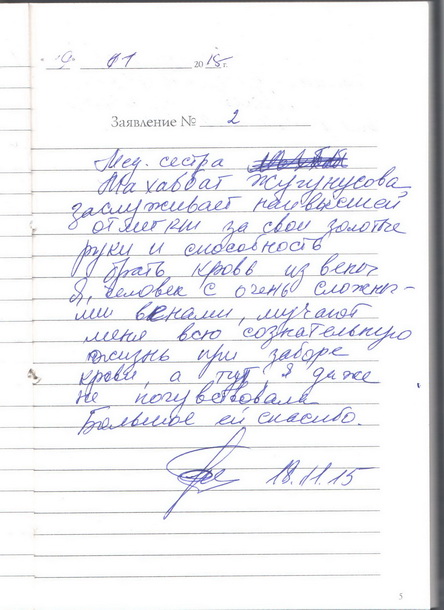 "19" 01 2015 г.
Заявление № 2
Мед. сестра
Махаббат Жугунусова
заслуживает наивысшей
отметки за свои золотые
руки и способность
брать кровь из вены
Я, человек с очень сложны-
ми венами, мучают
меня всю сознательную
жизнь при заборе
крови, а тут, я даже
не почувствовала
Большое ей спасибо.
18.11.15
5